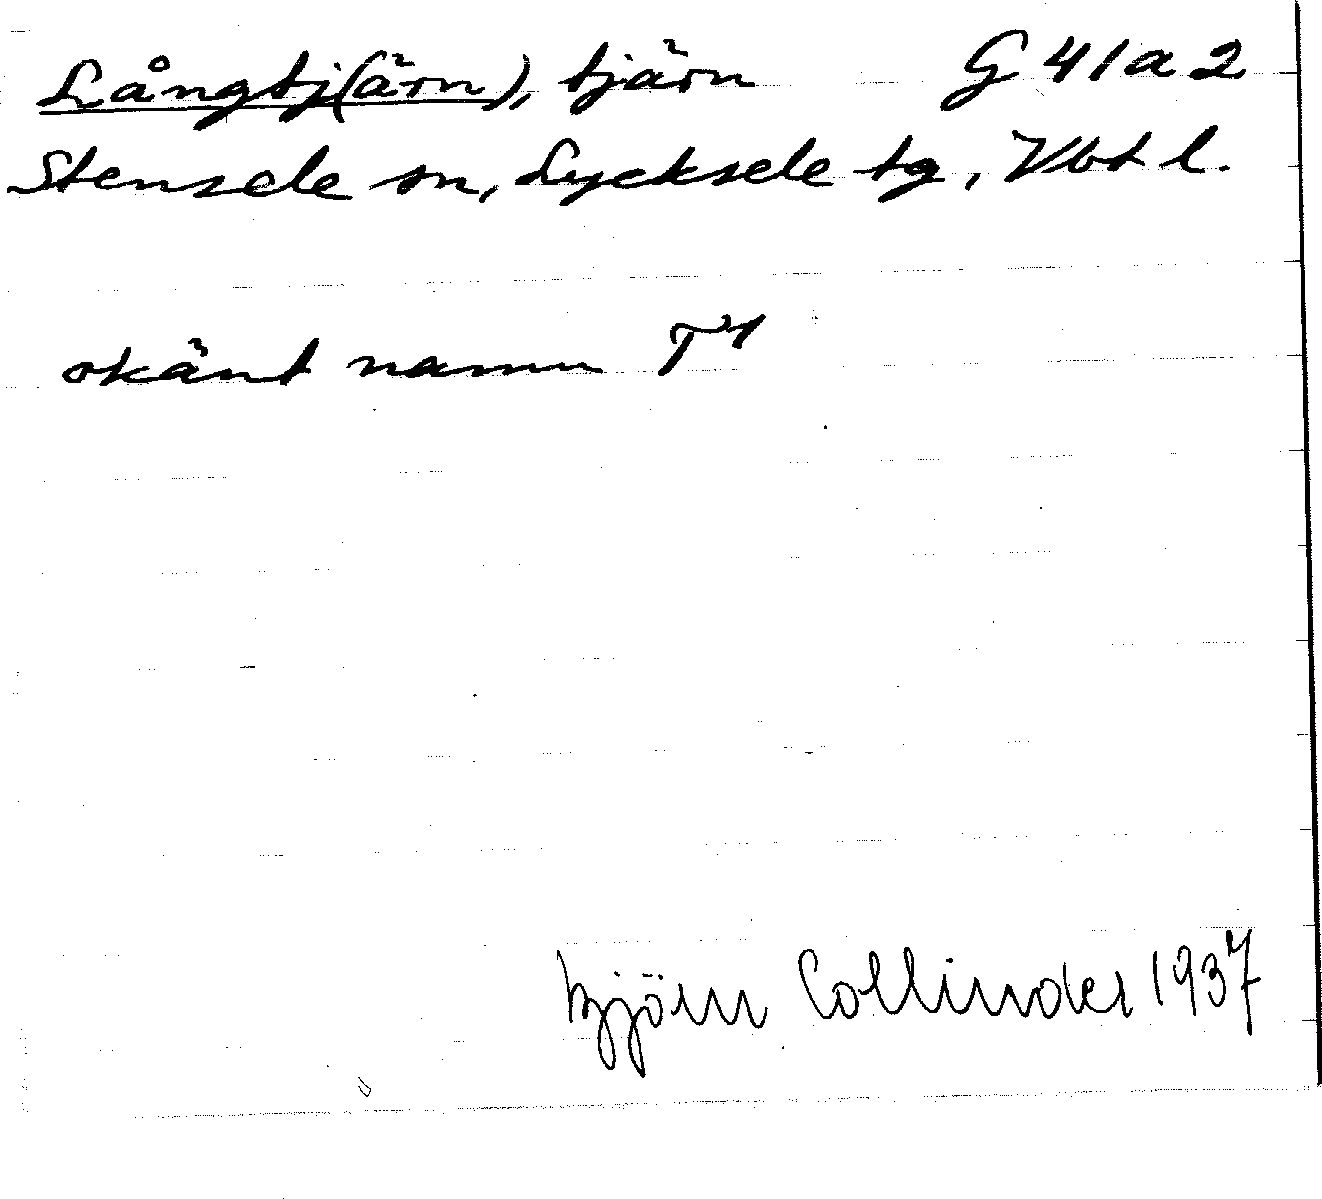 Långtj(ärn), tjärn G 41 a 2
Stensele sn, Lycksele tg, Vbt l.
okänt namn T1
Björn Collinder 1937